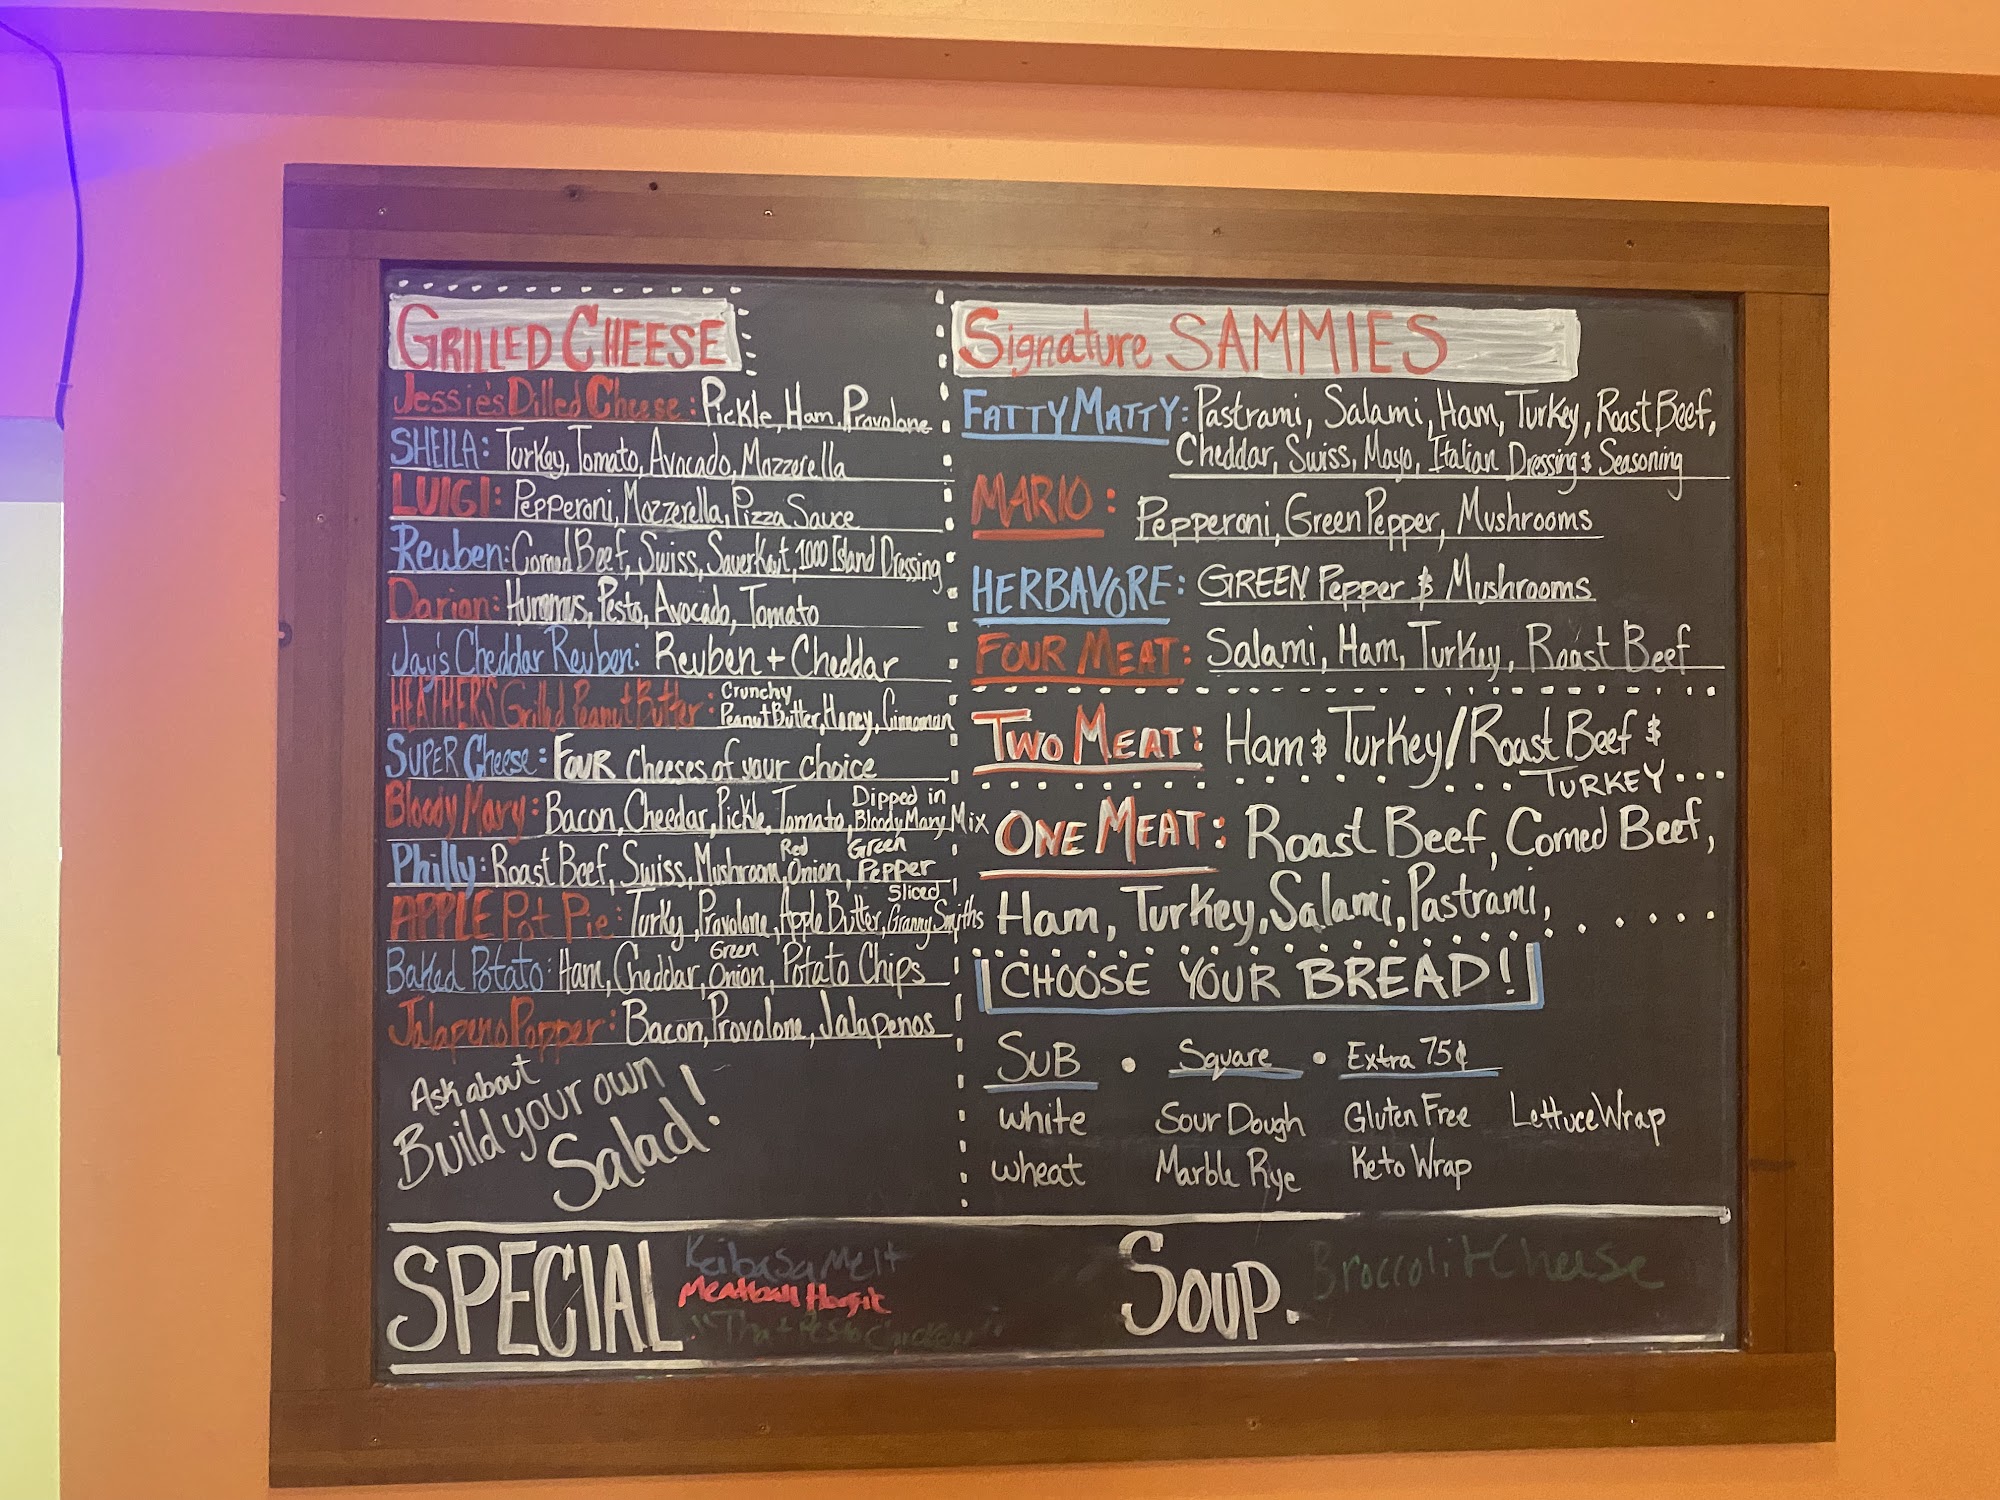 GRILLED CHEESE
Jessie's Dilled Cheese: Pickle, Ham, Provolone
SHEILA: Turkey, Tomato, Avocado, Mozzerella
LUIGI: Pepperoni, Mozzerella, Pizza Sauce
Reuben: Corned Beef, Swiss, Sauerkaut, 1000 Island Dressing
Darian: Hummus, Pesto, Avocado, Tomato
Jay's Cheddar Reuben: Reuben + Cheddar
HEATHER'S Grilled Peanut Butter: Crunchy
Peanut Butter, Honey, Cinnaman
SUPER Cheese: FOUR Cheeses of your choice
Bloody Mary: Bacon, Cheedar, Pickle, Tomato, Dipped in
Bloody Mary Mix
Philly: Roast Beef, Swiss, Mushroom, Red Onion, Green Pepper
APPLE Pot Pie: Turkey, Provolone, Apple Butter, Sliced Granny Smiths
Baked Potato: Ham, Cheddar, Green Onion, Potato Chips
Jalapeno Popper: Bacon, Provolone, Jalapenos
Ask about
Build your own
Salad!
Signature SAMMIES
FATTY MATTY: Pastrami, Salami, Ham, Turkey, Roast Beef,
Cheddar, Swiss, Mayo, Italian Dressing & Seasoning
MARIO: Pepperoni, Green Pepper, Mushrooms
HERBAVORE: GREEN Pepper & Mushrooms
FOUR MEAT: Salami, Ham, Turkey, Roast Beef
TWO MEAT: Ham & Turkey/Roast Beef &
TURKEY
ONE MEAT: Roast Beef, Corned Beef,
Ham, Turkey, Salami, Pastrami,
CHOOSE YOUR BREAD!
SUB • Square • Extra 75¢
white Sour Dough Gluten Free Lettuce Wrap
wheat Marble Rye Keto Wrap
SPECIAL
Keibasa Melt
Meatball
"That Pesto Chicken"
Soup. Broccoli + Cheese